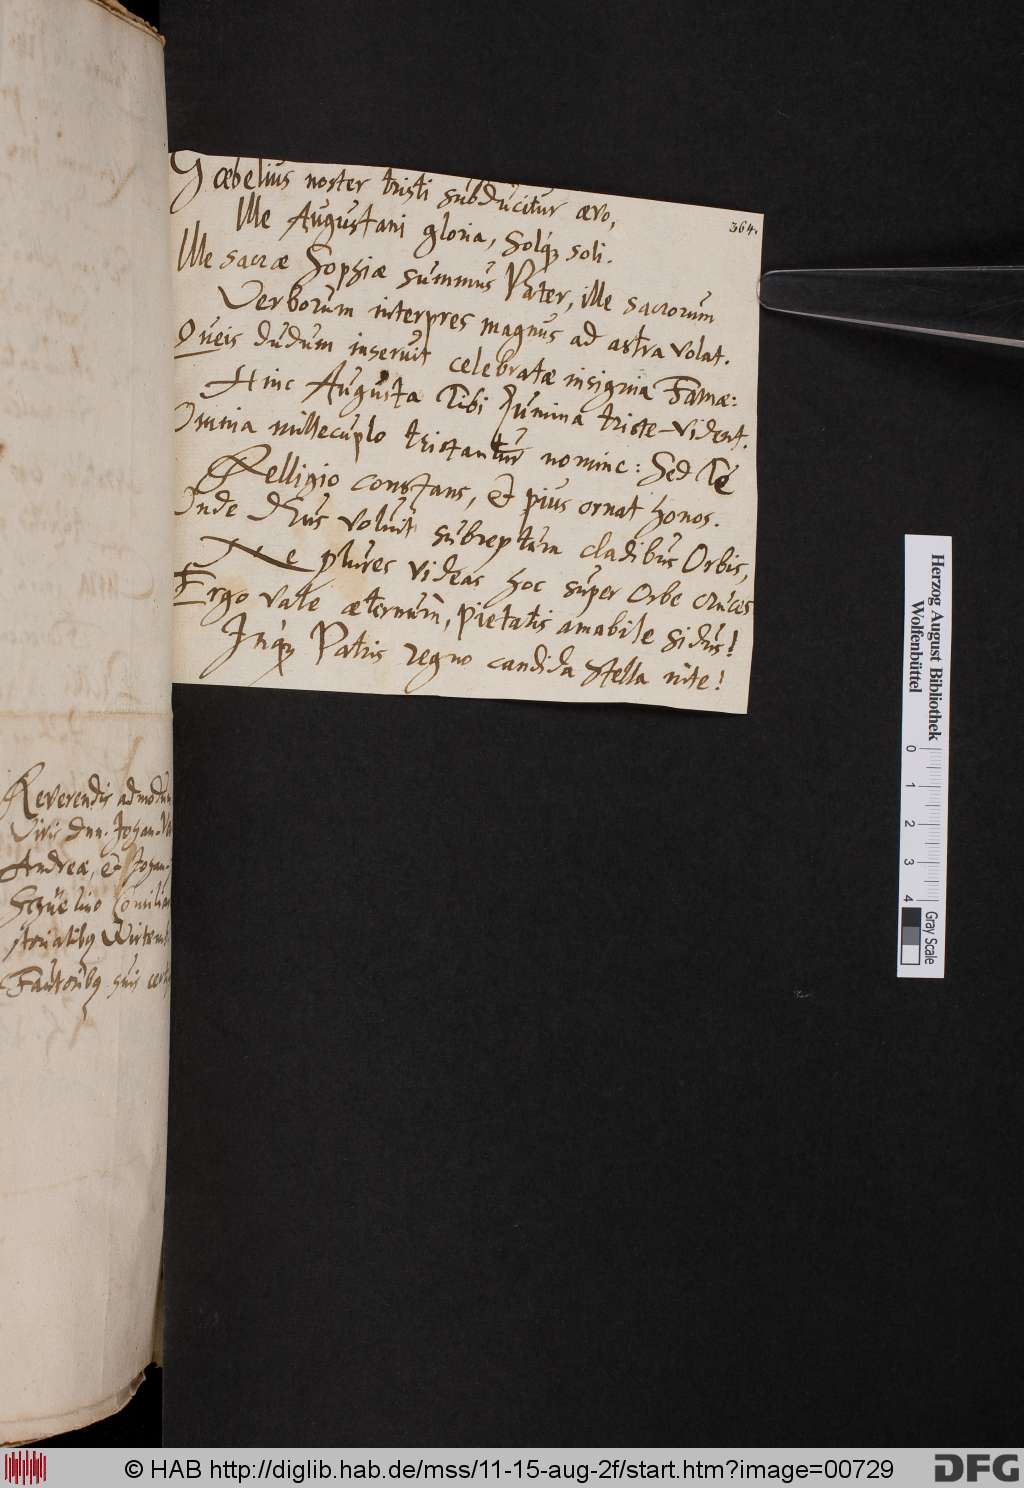 Gœbelius noster tristi subducitur ævo,
Ille Augustani gloria, Solq́ꝫ soli.
Ille sacræ Sophiæ summus Pater, ille sacrorum
Verborum interpres magnus ad astra volat.
Queis dudum inseruit celebratæ insignia Famæ:
Hinc Augusta Tibi Lumina triste-vident.
Omnia millecuplo tristantur nomine: Sed Te
Relligio constans, et pius ornat honos.
Inde DEus voluit subreptum cladibus Orbis,
Ne plures videas hoc super Orbe cruces
Ergo vale æternum, pietatis amabile sidus!
Inq́ꝫ Patris regno candida stella nite!
364.
Reverendis admodum
Viris Dnn. Johan. Va
Andreæ, et Johan.
Schüelino Consilia
storialibꝫ Wirtemb.
Fautoribꝫ suis
Herzog August Bibliothek
Wolfenbüttel
0 1 2 3 4
Gray Scale
© HAB http://diglib.hab.de/mss/11-15-aug-2f/start.htm?image=00729
DFG